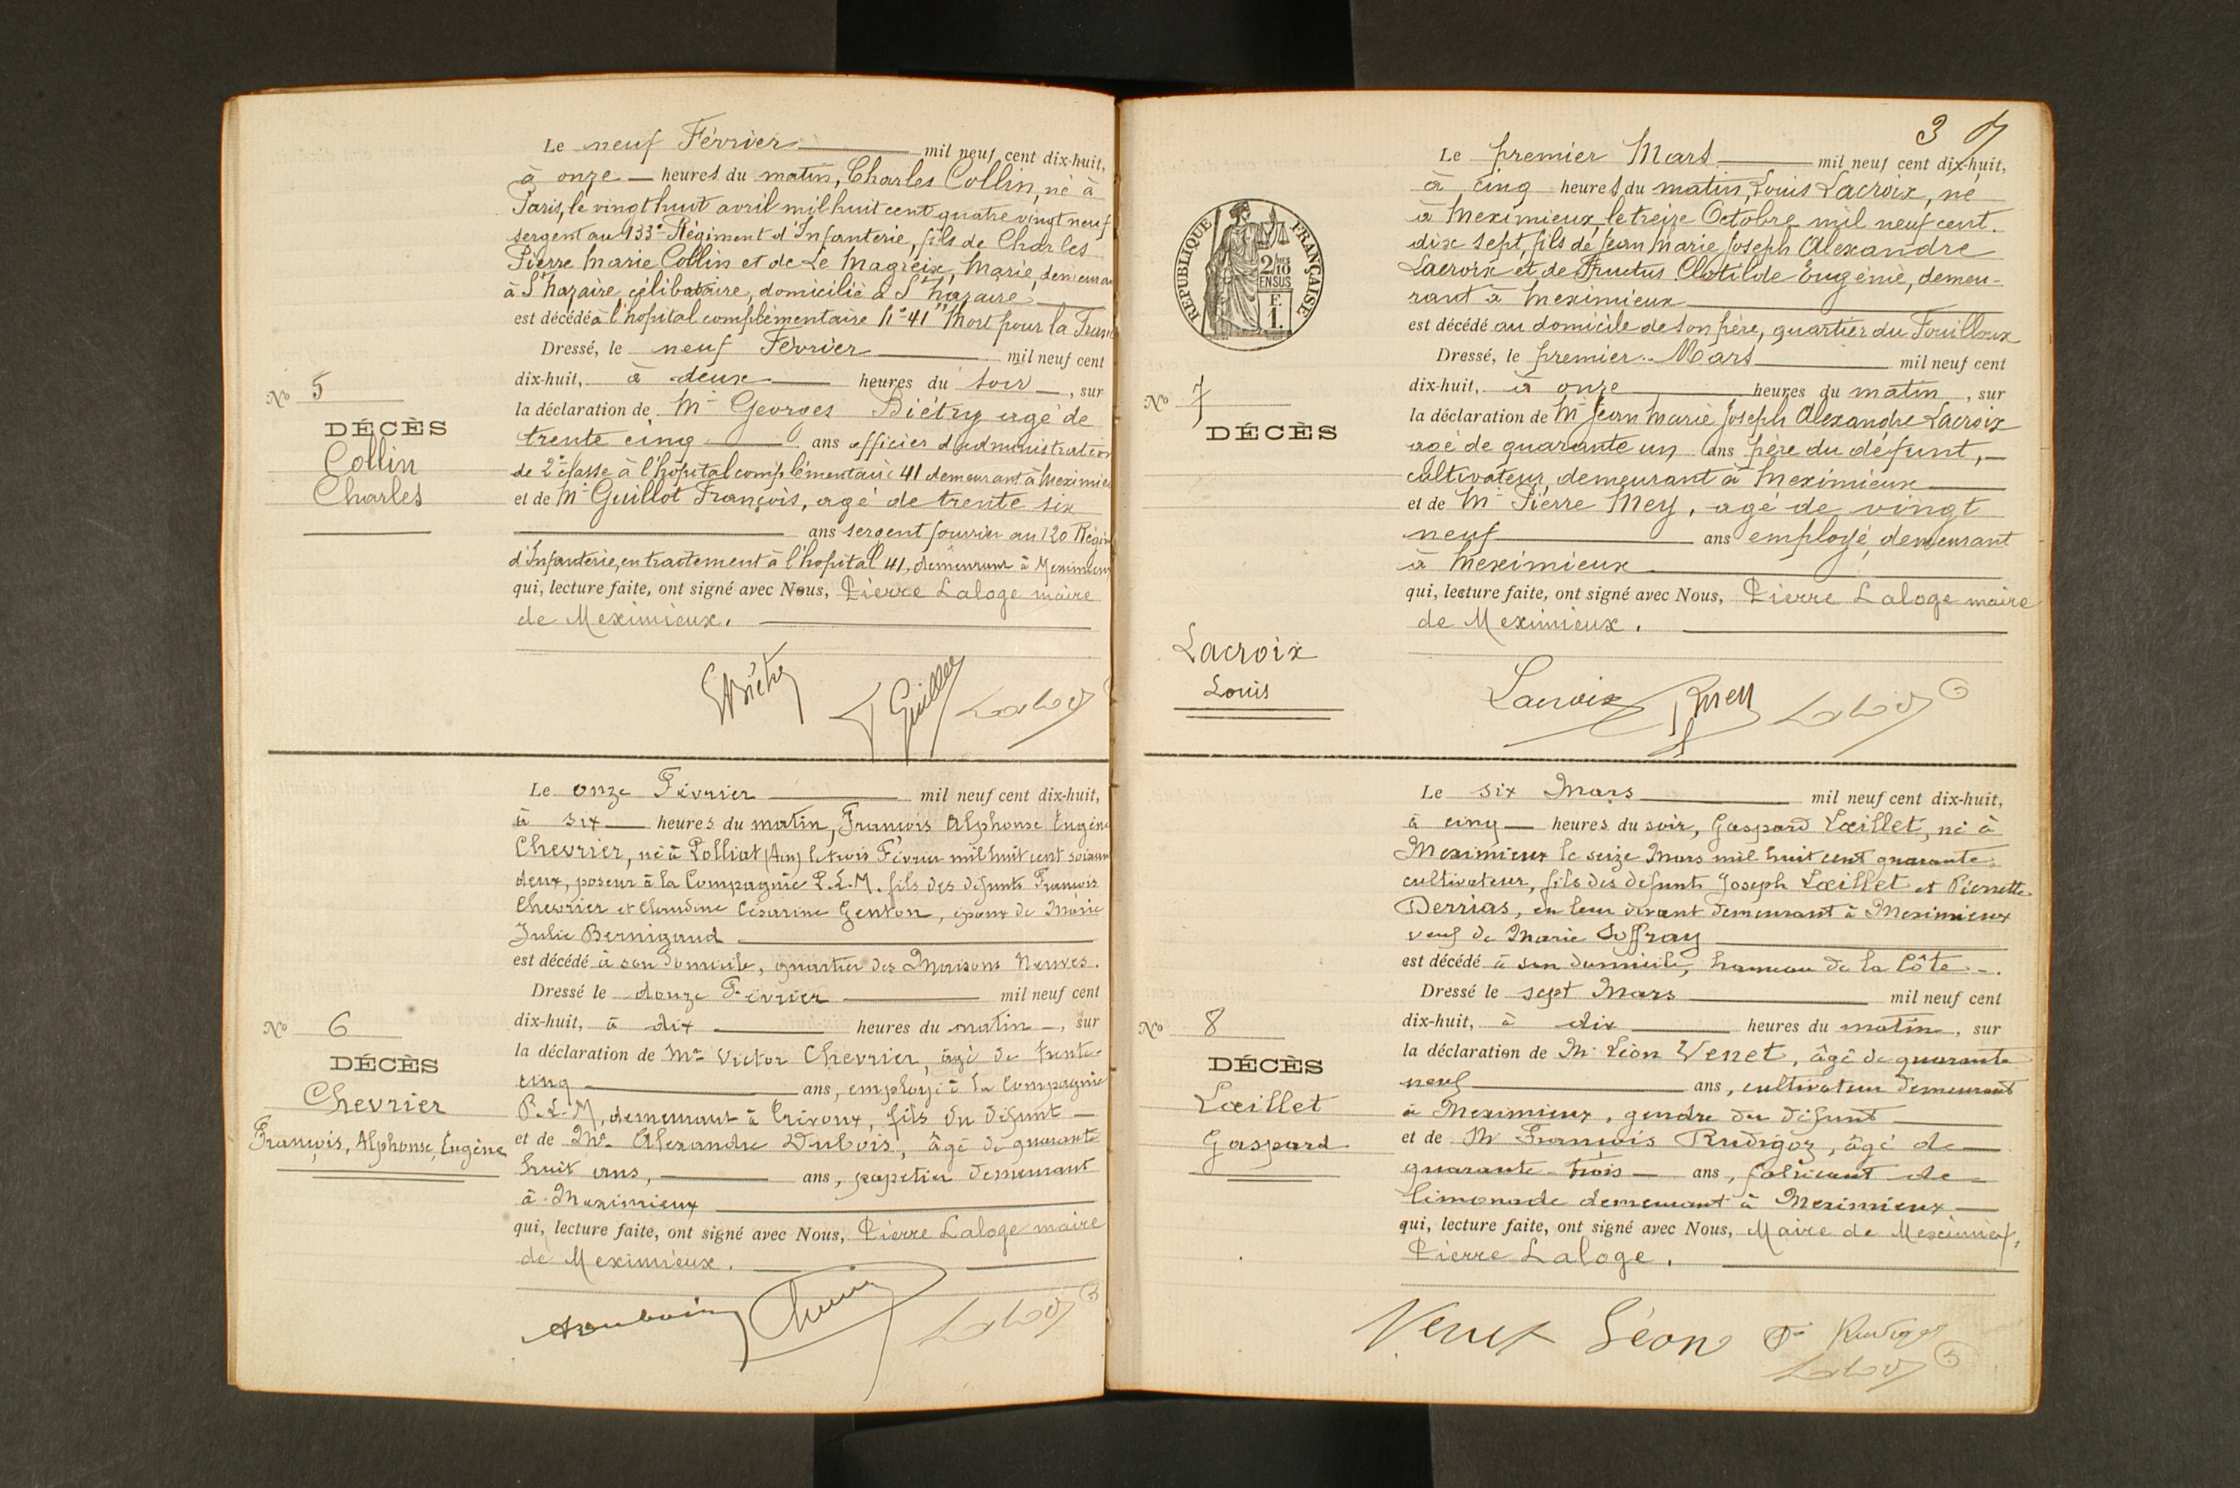 Le neuf Février mil neuf cent dix-huit,
à onze heures du matin, Charles Collin, né à
Paris, le vingt huit avril mil huit cent quatre vingt neuf
sergent au 133e Régiment d'Infanterie, fils de Charles
Pierre Marie Collin et de Le Magreix, Marie, demeurant
à St Nazaire, célibataire, domicilié à St Nazaire
est décédé à l'hopital complémentaire No 41 "Mort pour la France
Dressé, le neuf Février mil neuf cent
dix-huit, à deux heures du soir, sur
la déclaration de Mr Georges Biétry agé de
trente cinq ans officier d'administration
de 2e classe à l'hôpital complémentaire 41 demeurant à Meximieux
et de Mr Guillot François, agé de trente six
ans sergent fourrier au 120 Régim
d'Infanterie, en traitement à l'hopital 41, demeurant à Meximieux
qui, lecture faite, ont signé avec Nous, Pierre Laloge maire
de Meximieux.
No 5
DÉCÈS
Collin
Charles
GBiétry Guillot Laloge
Le onze Février mil neuf cent dix-huit,
à six heures du matin, François Alphonse Eugène
Chevrier, né à Polliat (Ain) le trois Février mil huit cent soixante
deux, poseur à la Compagnie P.L.M. fils des défunts François
Chevrier et Claudine Césarine Genton, époux de Marie
Julie Bernigaud
est décédé à son domicile, quartier des Maisons Neuves.
Dressé le douze Février mil neuf cent
dix-huit, à dix heures du matin, sur
la déclaration de Mr Victor Chevrier, âgé de trente
cinq ans, employé à la Compagnie
P.L.M, demeurant à Trévoux, fils du défunt
et de Mr Alexandre Dubois, âgé de quarante
huit ans, ans, papetier demeurant
à Meximieux
qui, lecture faite, ont signé avec Nous, Pierre Laloge maire
de Meximieux.
No 6
DÉCÈS
Chevrier
François, Alphonse, Eugène
Laloge
3
REPUBLIQUE FRANÇAISE
2/10
EN SUS
F.
1.
Le premier Mars mil neuf cent dix-huit,
à cinq heures du matin, Louis Lacroix, né
à Meximieux, le treize Octobre mil neuf cent.
dix sept, fils de Jean Marie Joseph Alexandre
Lacroix et de Fructus Clotilde Eugénie, demeu-
rant à Meximieux
est décédé au domicile de son père, quartier du Fouilloux
Dressé, le premier Mars mil neuf cent
dix-huit, à onze heures du matin, sur
la déclaration de Mr Jean Marie Joseph Alexandre Lacroix
agé de quarante un ans père du défunt,
cultivateur, demeurant à Meximieux
et de Mr Pierre Mey, agé de vingt
neuf ans employé, demeurant
à Meximieux
qui, lecture faite, ont signé avec Nous, Pierre Laloge maire
de Meximieux.
No 7
DÉCÈS
Lacroix
Louis
Lacroix Mey Laloge
Le six Mars mil neuf cent dix-huit,
à cinq heures du soir, Gaspard Lœillet, né à
Meximieux le seize Mars mil huit cent quarante
cultivateur, fils des défunts Joseph Lœillet et Pierrette
Derrias, en leur vivant demeurant à Meximieux
veuf de Marie Soffray
est décédé à son domicile, hameau de la Côte.
Dressé le sept Mars mil neuf cent
dix-huit, à dix heures du matin, sur
la déclaration de Mr Léon Venet, âgé de quarante
neuf ans, cultivateur demeurant
à Meximieux, gendre du défunt
et de Mr François Rudigoz, âgé de
quarante-trois ans, fabricant de
limonade demeurant à Meximieux
qui, lecture faite, ont signé avec Nous, Maire de Meximieux,
Pierre Laloge.
No 8
DÉCÈS
Lœillet
Gaspard
Venet Léon Rudigoz
Laloge